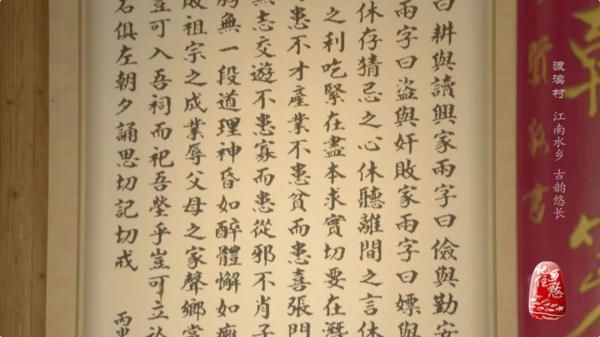 曰耕與讀興家兩字曰儉與勤安
兩字曰盜與奸敗家兩字曰嫖與
休存猜忌之心休聽離間之言休
之利吃緊在盡本求實切要在
患不才產業不患貧而患喜張門
無志交遊不患寡而患從邪不肖子
胸無一段道理神昏如醉體懈如
敗祖宗之成業辱父母之家聲鄉
豈可入吾祠而祀吾塋乎豈可立於
名俱左朝夕誦思切記切戒
丙
村 江南水乡 古韵悠长
记住乡愁